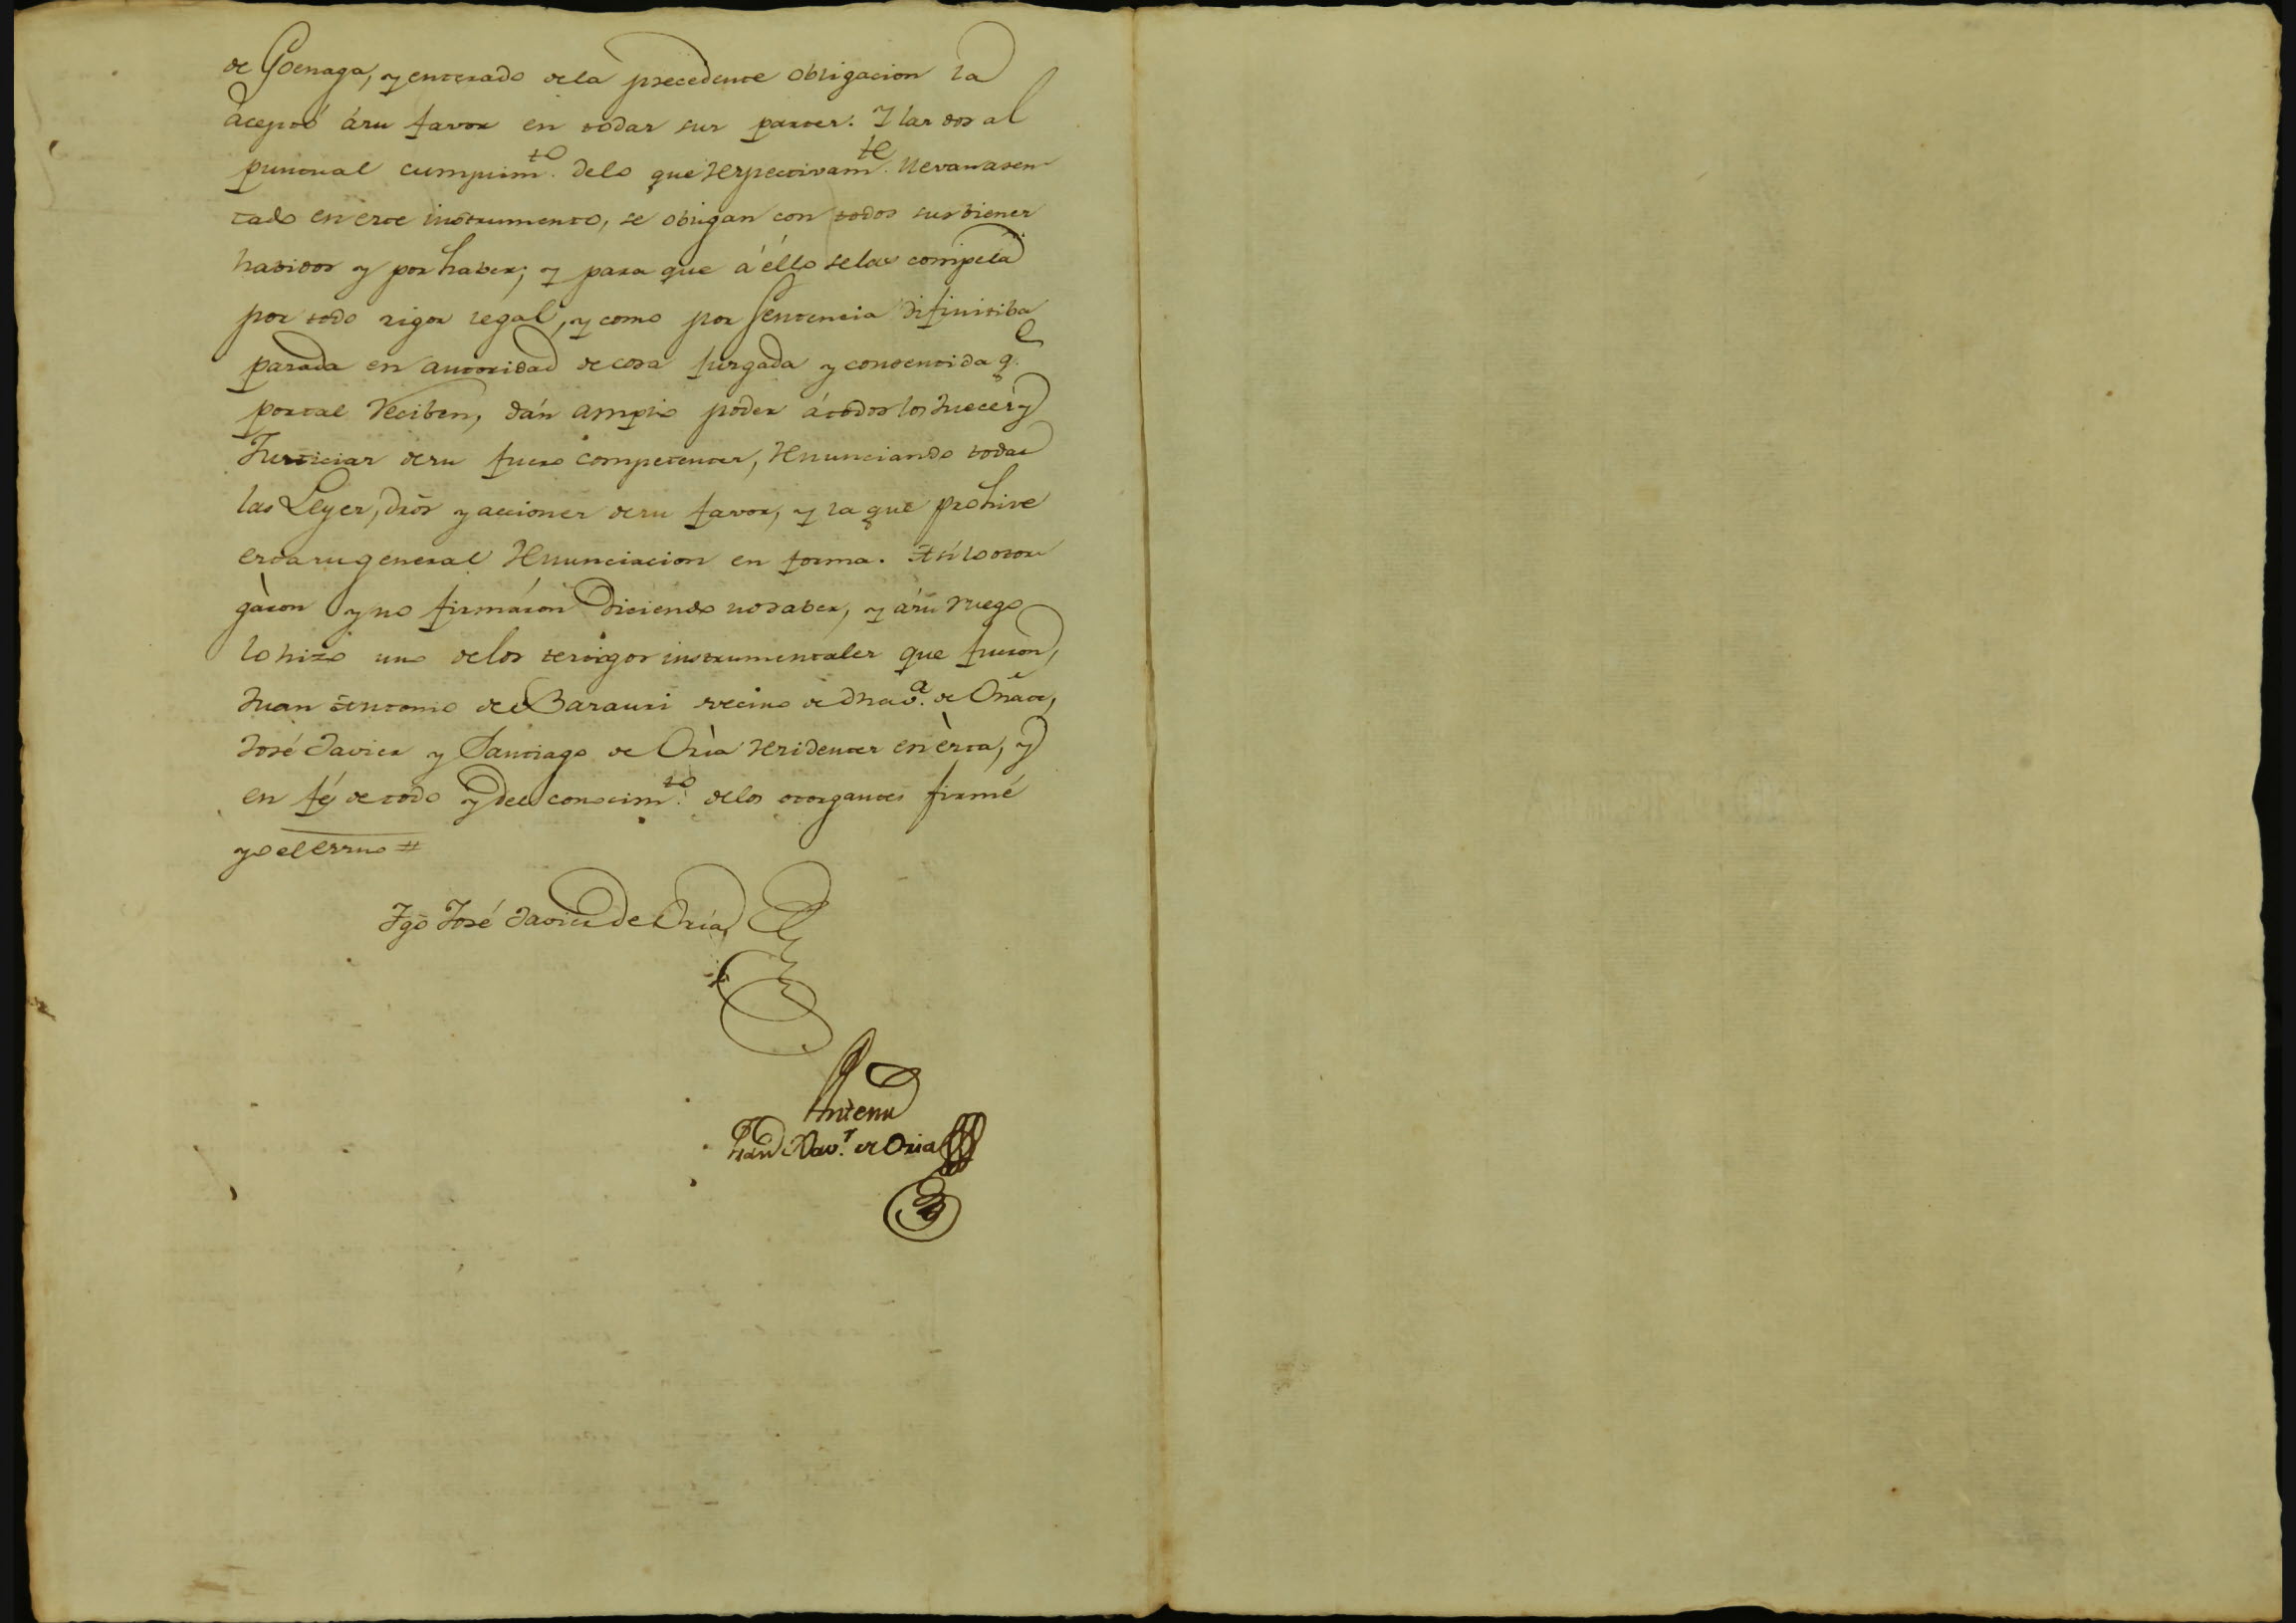 de Goenaga, y enterado dela precedente obligacion la
áceptó ásu favor en todas sus partes. Y las dos al
puntual cumplim.to delo que respectivam.te llevan asen
tado en este instrumento, se obligan con todos sus bienes
habidos y por haber; y para que á éllo selas compela
por todo rigor legal, y como por Sentencia difinitiba
pasada en autoridad de cosa jusgada y consentida q.e
portal reciben, dán amplio poder átodos los Jueces y
Justicias desu fuero competentes, renunciando todas
las Leyes, dr̃os y acciones desu favor, y la que prohive
esta su general renunciacion en forma. Asi lo otor
gàron y no firmáron diciendo nosaber, y ásu ruego
lo hizo uno delos testigos instrumentales que fueron,
Juan Antonio de Barauri vecino de dha v.a de Oñate,
José Javier y Santiago de Oria residentes en èsta, y
en fé de todo y del conocim.to delos otorgantes firmé
yo el essno =
Tgõ José Javier de Oria
Antemi
Juan Xav.r de Oria